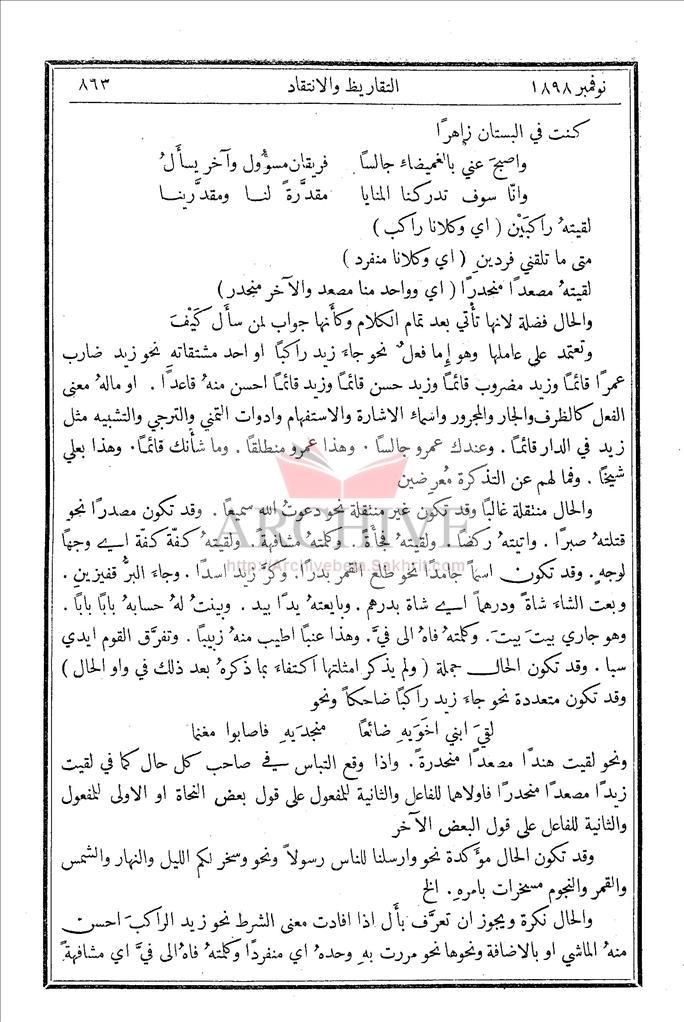 نوفمبر ١٨٩٨ التقاريظ والانتقاد ٨٦٣
كنت في البستان زاهرًا
واصبحَ عني بالغميضاء جالسًا فريقان مسؤُول وآخر يسأَلُ
وانَّا سوف تدركنا المنايا مقدَّرةً لنا ومقدَّرينا
لقيتهُ راكبَيْن ( اي وكلانا راكب )
متى ما تلقني فردين ( اي وكلانا منفرد )
لقيتهُ مصعدًا منحدرًا ( اي وواحد منا مصعد والآخر منحدر )
والحال فضلة لانها تأتي بعد تمام الكلام وكأنها جواب لمن سأل كَيْفَ
وتعتمد على عاملها وهو إما فعلٌ نحو جاءَ زيد راكبًا او احد مشتقاته نحو زيد ضارب
عمرًا قائمًا وزيد مضروب قائمًا وزيد حسن قائمًا وزيد قائمًا احسن منهُ قاعدًا . او مالهُ معنى
الفعل كالظرف والجار والمجرور واسماء الاشارة والاستفهام وادوات التمني والترجي والتشبيه مثل
زيد في الدار قائمًا . وعندك عمرو جالسًا . وهذا عمرو منطلقًا . وما شأنك قائمًا . وهذا بعلي
شيخًا . فما لهم عن التذكرة معرضين
والحال منتقلة غالبًا وقد تكون غير منتقلة نحو دعوتُ الله سميعًا . وقد تكون مصدرًا نحو
قتلتهُ صبرًا . واتيتهُ ركضًا . ولقيتهُ فجاءةً . وكلمتهُ مشافهةً . ولقيتهُ كفّة كفة اي وجهًا
لوجهٍ . وقد تكون اسمًا جامدًا نحو طلع القمر بدرًا . وكرَّ زيد اسدًا . وجاءَ البرُّ قفيزين .
وبعت الشاءَ شاةً ودرهمًا اي شاة بدرهم . وبايعتهُ يدًا بيد . وبينتُ لهُ حسابهُ بابًا بابًا .
وهو جاري بيتَ بيتَ . وكلمتهُ فاهُ الى فيَّ . وهذا عنبًا اطيب منهُ زبيبًا . وتفرَّق القوم ايدي
سبا . وقد تكون الحال جملة ( ولم يذكر امثلتها اكتفاءً بما ذكرهُ بعد ذلك في واو الحال )
وقد تكون متعددة نحو جاءَ زيد راكبًا ضاحكًا ونحو
لقيَ ابني اخوَيهِ ضائعًا منجديهِ فاصابوا مغنما
ونحو لقيت هندًا مصعدًا منحدرةً . واذا وقع التباس في صاحب كل حال كما في لقيت
زيدًا مصعدًا منحدرًا فاولاهما للفاعل والثانية للمفعول على قول بعض النحاة او الاولى للمفعول
والثانية للفاعل على قول البعض الآخر
وقد تكون الحال مؤَكدة نحو وارسلنا للناس رسولاً ونحو وسخر لكم الليل والنهار والشمس
والقمر والنجوم مسخرات بامرهِ . الخ
والحال نكرة ويجوز ان تعرَّف بأَل اذا افادت معنى الشرط نحو زيد الراكبَ احسن
منهُ الماشي او بالاضافة ونحوها نحو مررت بهِ وحدهُ اي منفردًا وكلمتهُ فاهُ الى فيَّ اي مشافهةً
ARCHIVE
http://Archivebeta.Sakhrit.com